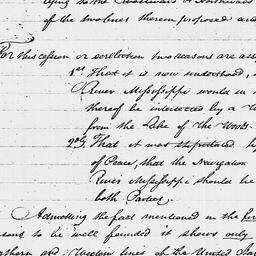 of the two lines therein proposed and
For this cession or
two reasons are ass
1st. That it is now understood,
River Mississippi would in
thereof be intersected by a
from the Lake of the Woods.
2d. That it was stipulated by
of Peace, that the Navigation
River Mississippi should be
both Parties.
Admitting the fact mentioned in the fir
to be well founded it shews only
thern and Western lines of the United Sta